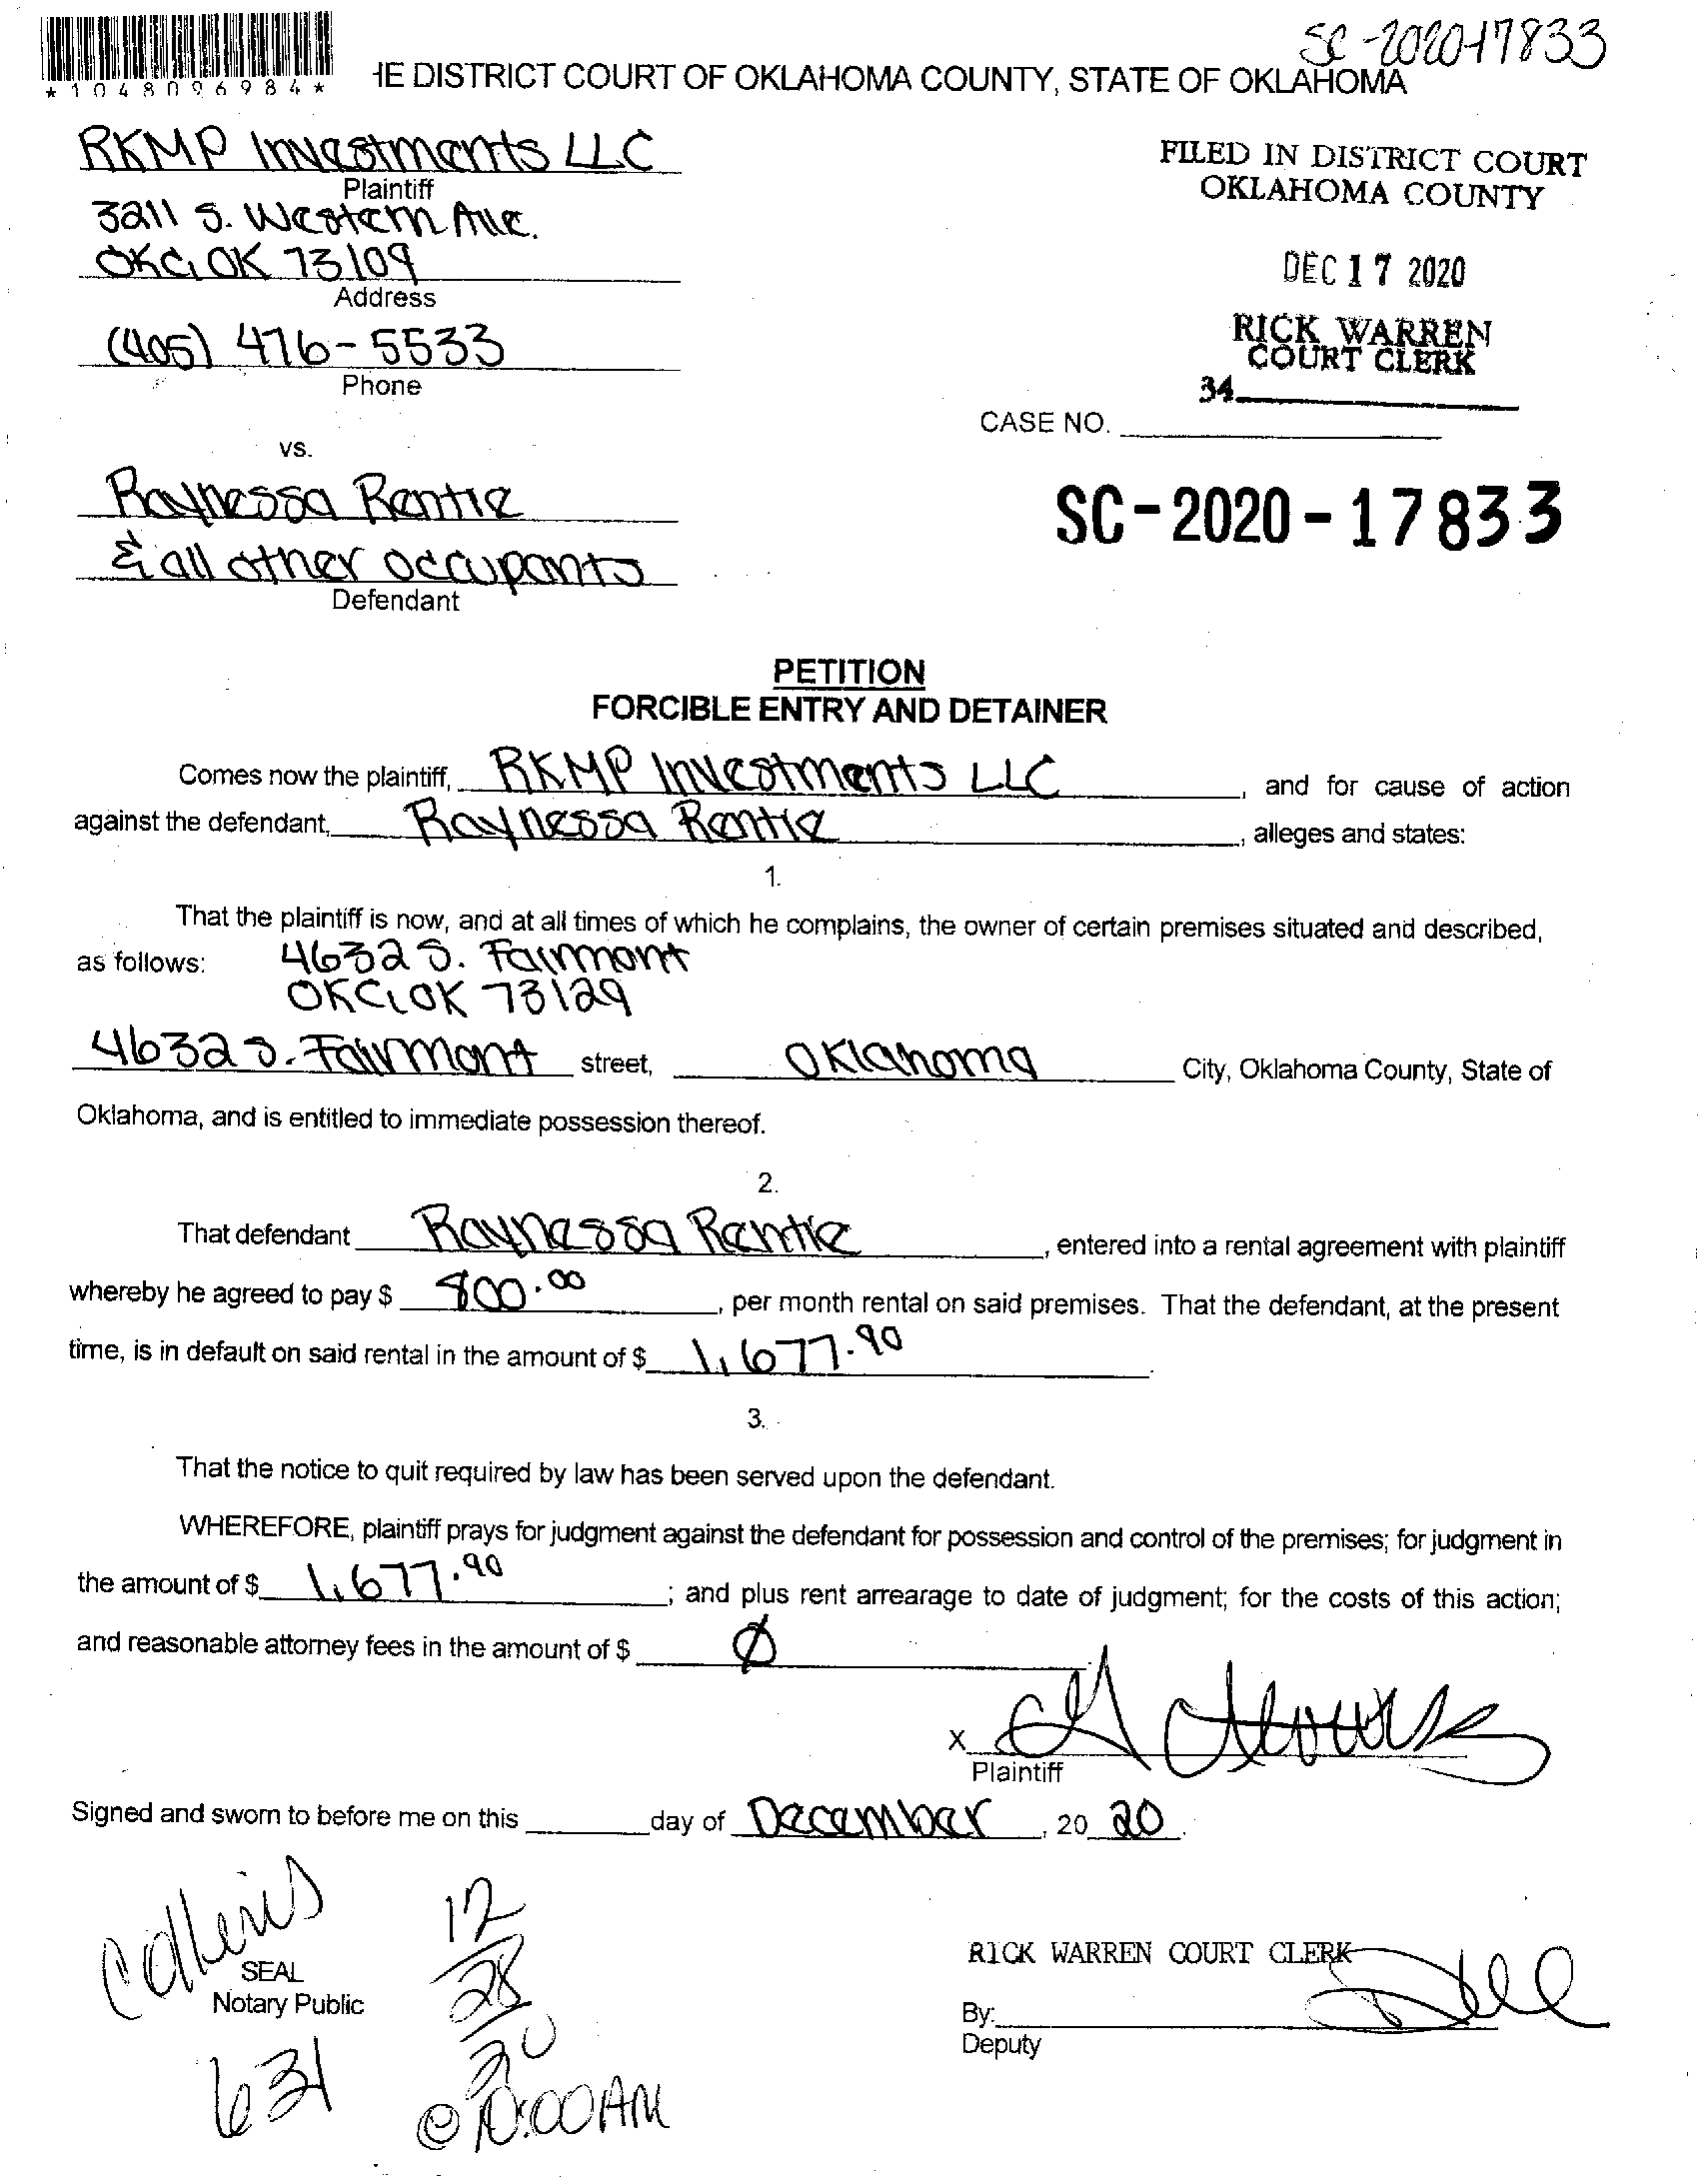 SC-2020-17833
*1048096984*
HE DISTRICT COURT OF OKLAHOMA COUNTY, STATE OF OKLAHOMA
RKMP Investments LLC
Plaintiff
3211 S. Western Ave.
OKC, OK 73109
Address
(405) 476-5533
Phone
FILED IN DISTRICT COURT
OKLAHOMA COUNTY
DEC 17 2020
RICK WARREN
COURT CLERK
34
CASE NO.
vs.
SC-2020-17833
Raynessa Rentie
& all other occupants
Defendant
PETITION
FORCIBLE ENTRY AND DETAINER
Comes now the plaintiff, RKMP Investments LLC, and for cause of action
against the defendant, Raynessa Rentie, alleges and states:
1.
That the plaintiff is now, and at all times of which he complains, the owner of certain premises situated and described,
as follows: 4632 S. Fairmont
OKC, OK 73129
4632 S. Fairmont street, Oklahoma City, Oklahoma County, State of
Oklahoma, and is entitled to immediate possession thereof.
2.
That defendant Raynessa Rentie, entered into a rental agreement with plaintiff
whereby he agreed to pay $ 800.00, per month rental on said premises. That the defendant, at the present
time, is in default on said rental in the amount of $ 1,677.90.
3.
That the notice to quit required by law has been served upon the defendant.
WHEREFORE, plaintiff prays for judgment against the defendant for possession and control of the premises; for judgment in
the amount of $ 1,677.90; and plus rent arrearage to date of judgment; for the costs of this action;
and reasonable attorney fees in the amount of $ Ø
X
Plaintiff
Signed and sworn to before me on this day of December, 20 20.
SEAL
Notary Public
631
12
28
20
@ 10:00AM
RICK WARREN COURT CLERK
By:
Deputy